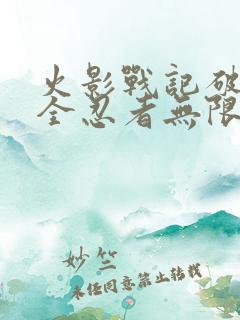 火影戰記破
全忍者無限
妙竺
未经同意禁止转载